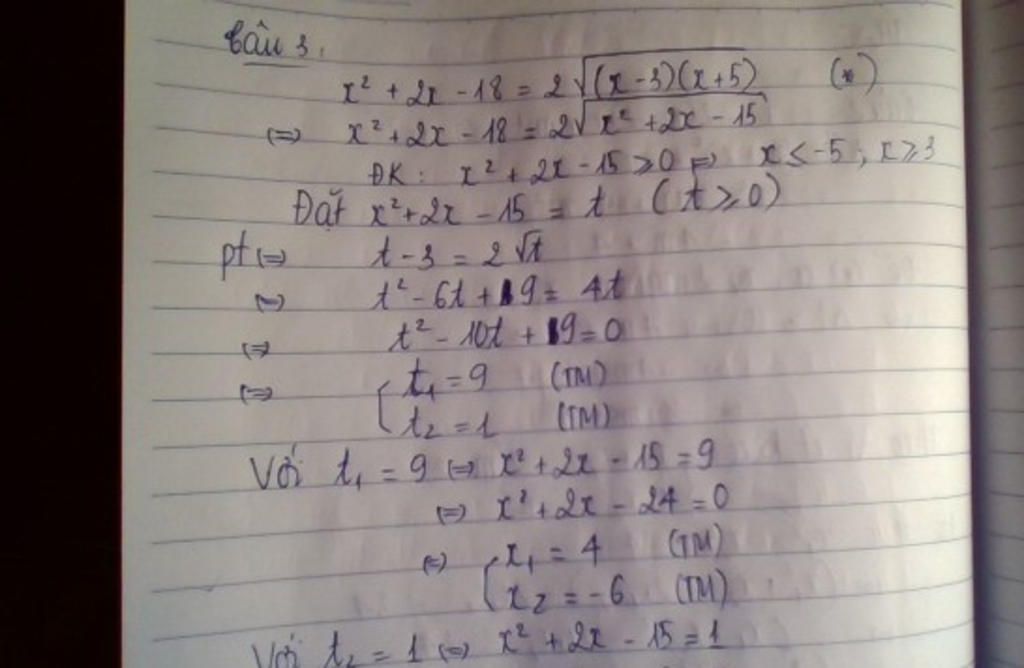 Câu 3.
x² + 2x - 18 = 2√(x-3)(x+5) (*)
(=) x² + 2x - 18 = 2√x² + 2x - 15
ĐK: x² + 2x - 15 ≥ 0 => x ≤ -5 ; x ≥ 3
Đặt x² + 2x - 15 = t (t ≥ 0)
pt (=) t - 3 = 2√t
(=) t² - 6t + 9 = 4t
(=) t² - 10t + 9 = 0
(=) t₁ = 9 (TM)
t₂ = 1 (TM)
Với t₁ = 9 (=) x² + 2x - 15 = 9
(=) x² + 2x - 24 = 0
(=) x₁ = 4 (TM)
x₂ = -6 (TM)
Với t₂ = 1 (=) x² + 2x - 15 = 1